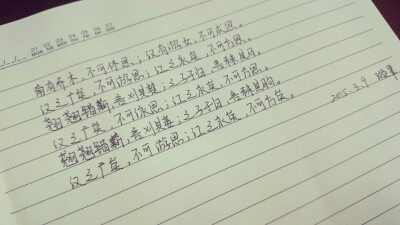 南有乔木，不可休思；汉有游女，不可求思。
汉之广矣，不可游思；江之永矣，不可方思。
翘翘错薪，言刈其楚；之子于归，言秣其马。
汉之广矣，不可泳思；江之永矣，不可方思。
翘翘错薪，言刈其蒌；之子于归，言秣其驹。
汉之广矣，不可游思；江之永矣，不可方矣。
2015.3.9